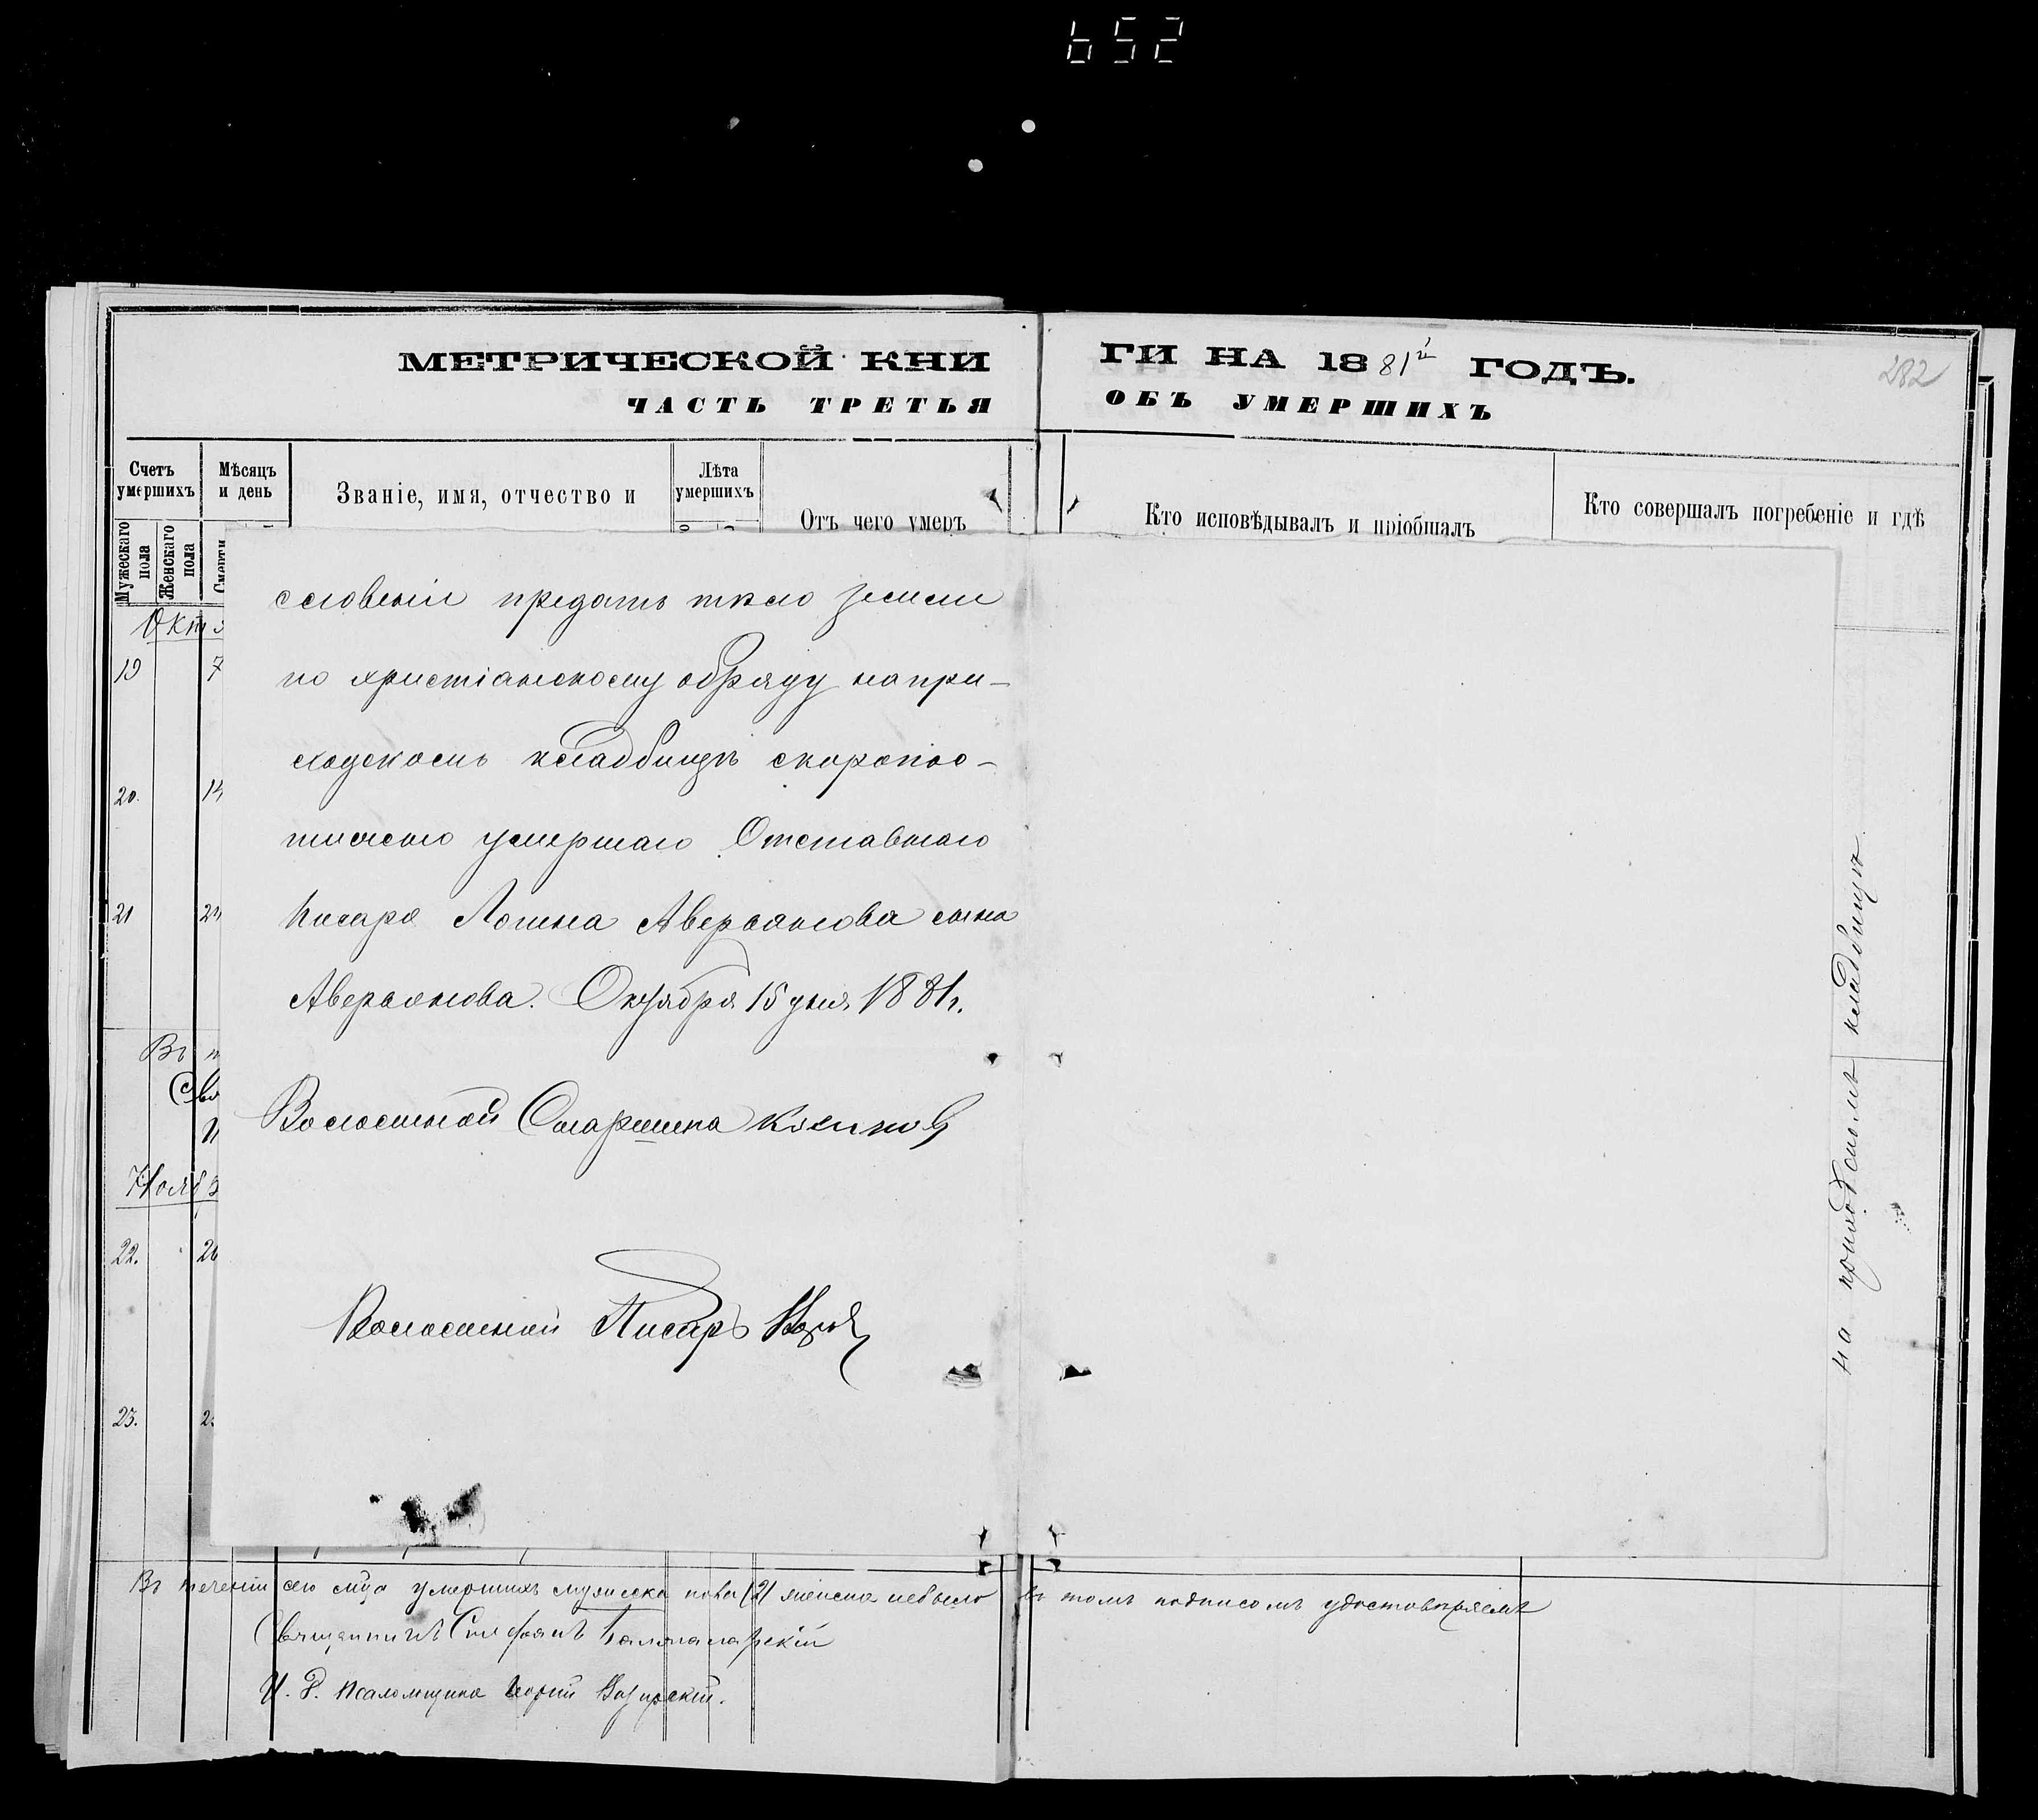 652
МЕТРИЧЕСКОЙ КНИ
ГИ НА 1881й ГОДЪ.
282
ЧАСТЬ ТРЕТЬЯ
ОБЪ УМЕРШИХЪ
Счетъ умершихъ
Мѣсяцъ и день
Званіе, имя, отчество и
Лѣта умершихъ
Отъ чего умеръ
Кто исповѣдывалъ и пріобщалъ
Кто совершалъ погребеніе и гдѣ
Мужескаго пола
Женскаго пола
Смерти
Октя
19 7
20. 14
21 24
Въ
Свя
Нояб
22. 26
23. 2
словеніи предать тѣло земли
по христіанскому обряду на при-
ходскомъ кладбищѣ скоропос-
тижно умершаго Отставнаго
Писаря Логина Аверьянова сына
Аверьянова. Октября 15 дня 1881 г.
Волостной Старшина
Волостной Писарь
на приходскомъ кладбищѣ
Въ теченіи сего мца умершихъ мужеска пола (2) женска небыло
въ томъ подписомъ удостовѣряемъ
Священникъ Стефанъ
И. Д. Псаломщика